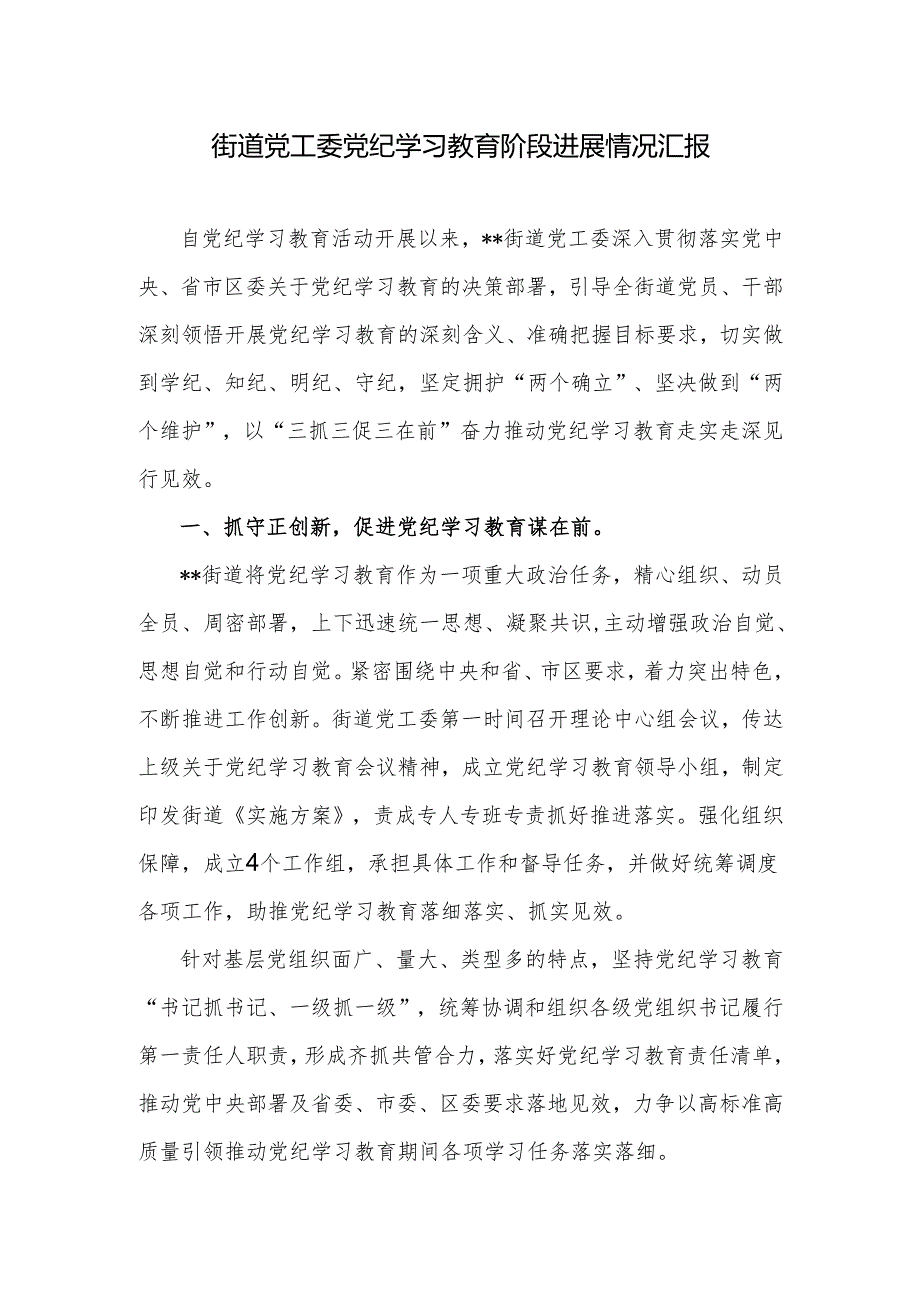 街道党工委党纪学习教育阶段进展情况汇报
自党纪学习教育活动开展以来，**街道党工委深入贯彻落实党中
央、省市区委关于党纪学习教育的决策部署，引导全街道党员、干部
深刻领悟开展党纪学习教育的深刻含义、准确把握目标要求，切实做
到学纪、知纪、明纪、守纪，坚定拥护“两个确立”、坚决做到“两
个维护”，以“三抓三促三在前”奋力推动党纪学习教育走实走深见
行见效。
一、抓守正创新，促进党纪学习教育谋在前。
**街道将党纪学习教育作为一项重大政治任务，精心组织、动员
全员、周密部署，上下迅速统一思想、凝聚共识,主动增强政治自觉、
思想自觉和行动自觉。紧密围绕中央和省、市区要求，着力突出特色，
不断推进工作创新。街道党工委第一时间召开理论中心组会议，传达
上级关于党纪学习教育会议精神，成立党纪学习教育领导小组，制定
印发街道《实施方案》，责成专人专班专责抓好推进落实。强化组织
保障，成立4个工作组，承担具体工作和督导任务，并做好统筹调度
各项工作，助推党纪学习教育落细落实、抓实见效。
针对基层党组织面广、量大、类型多的特点，坚持党纪学习教育
“书记抓书记、一级抓一级”，统筹协调和组织各级党组织书记履行
第一责任人职责，形成齐抓共管合力，落实好党纪学习教育责任清单，
推动党中央部署及省委、市委、区委要求落地见效，力争以高标准高
质量引领推动党纪学习教育期间各项学习任务落实落细。